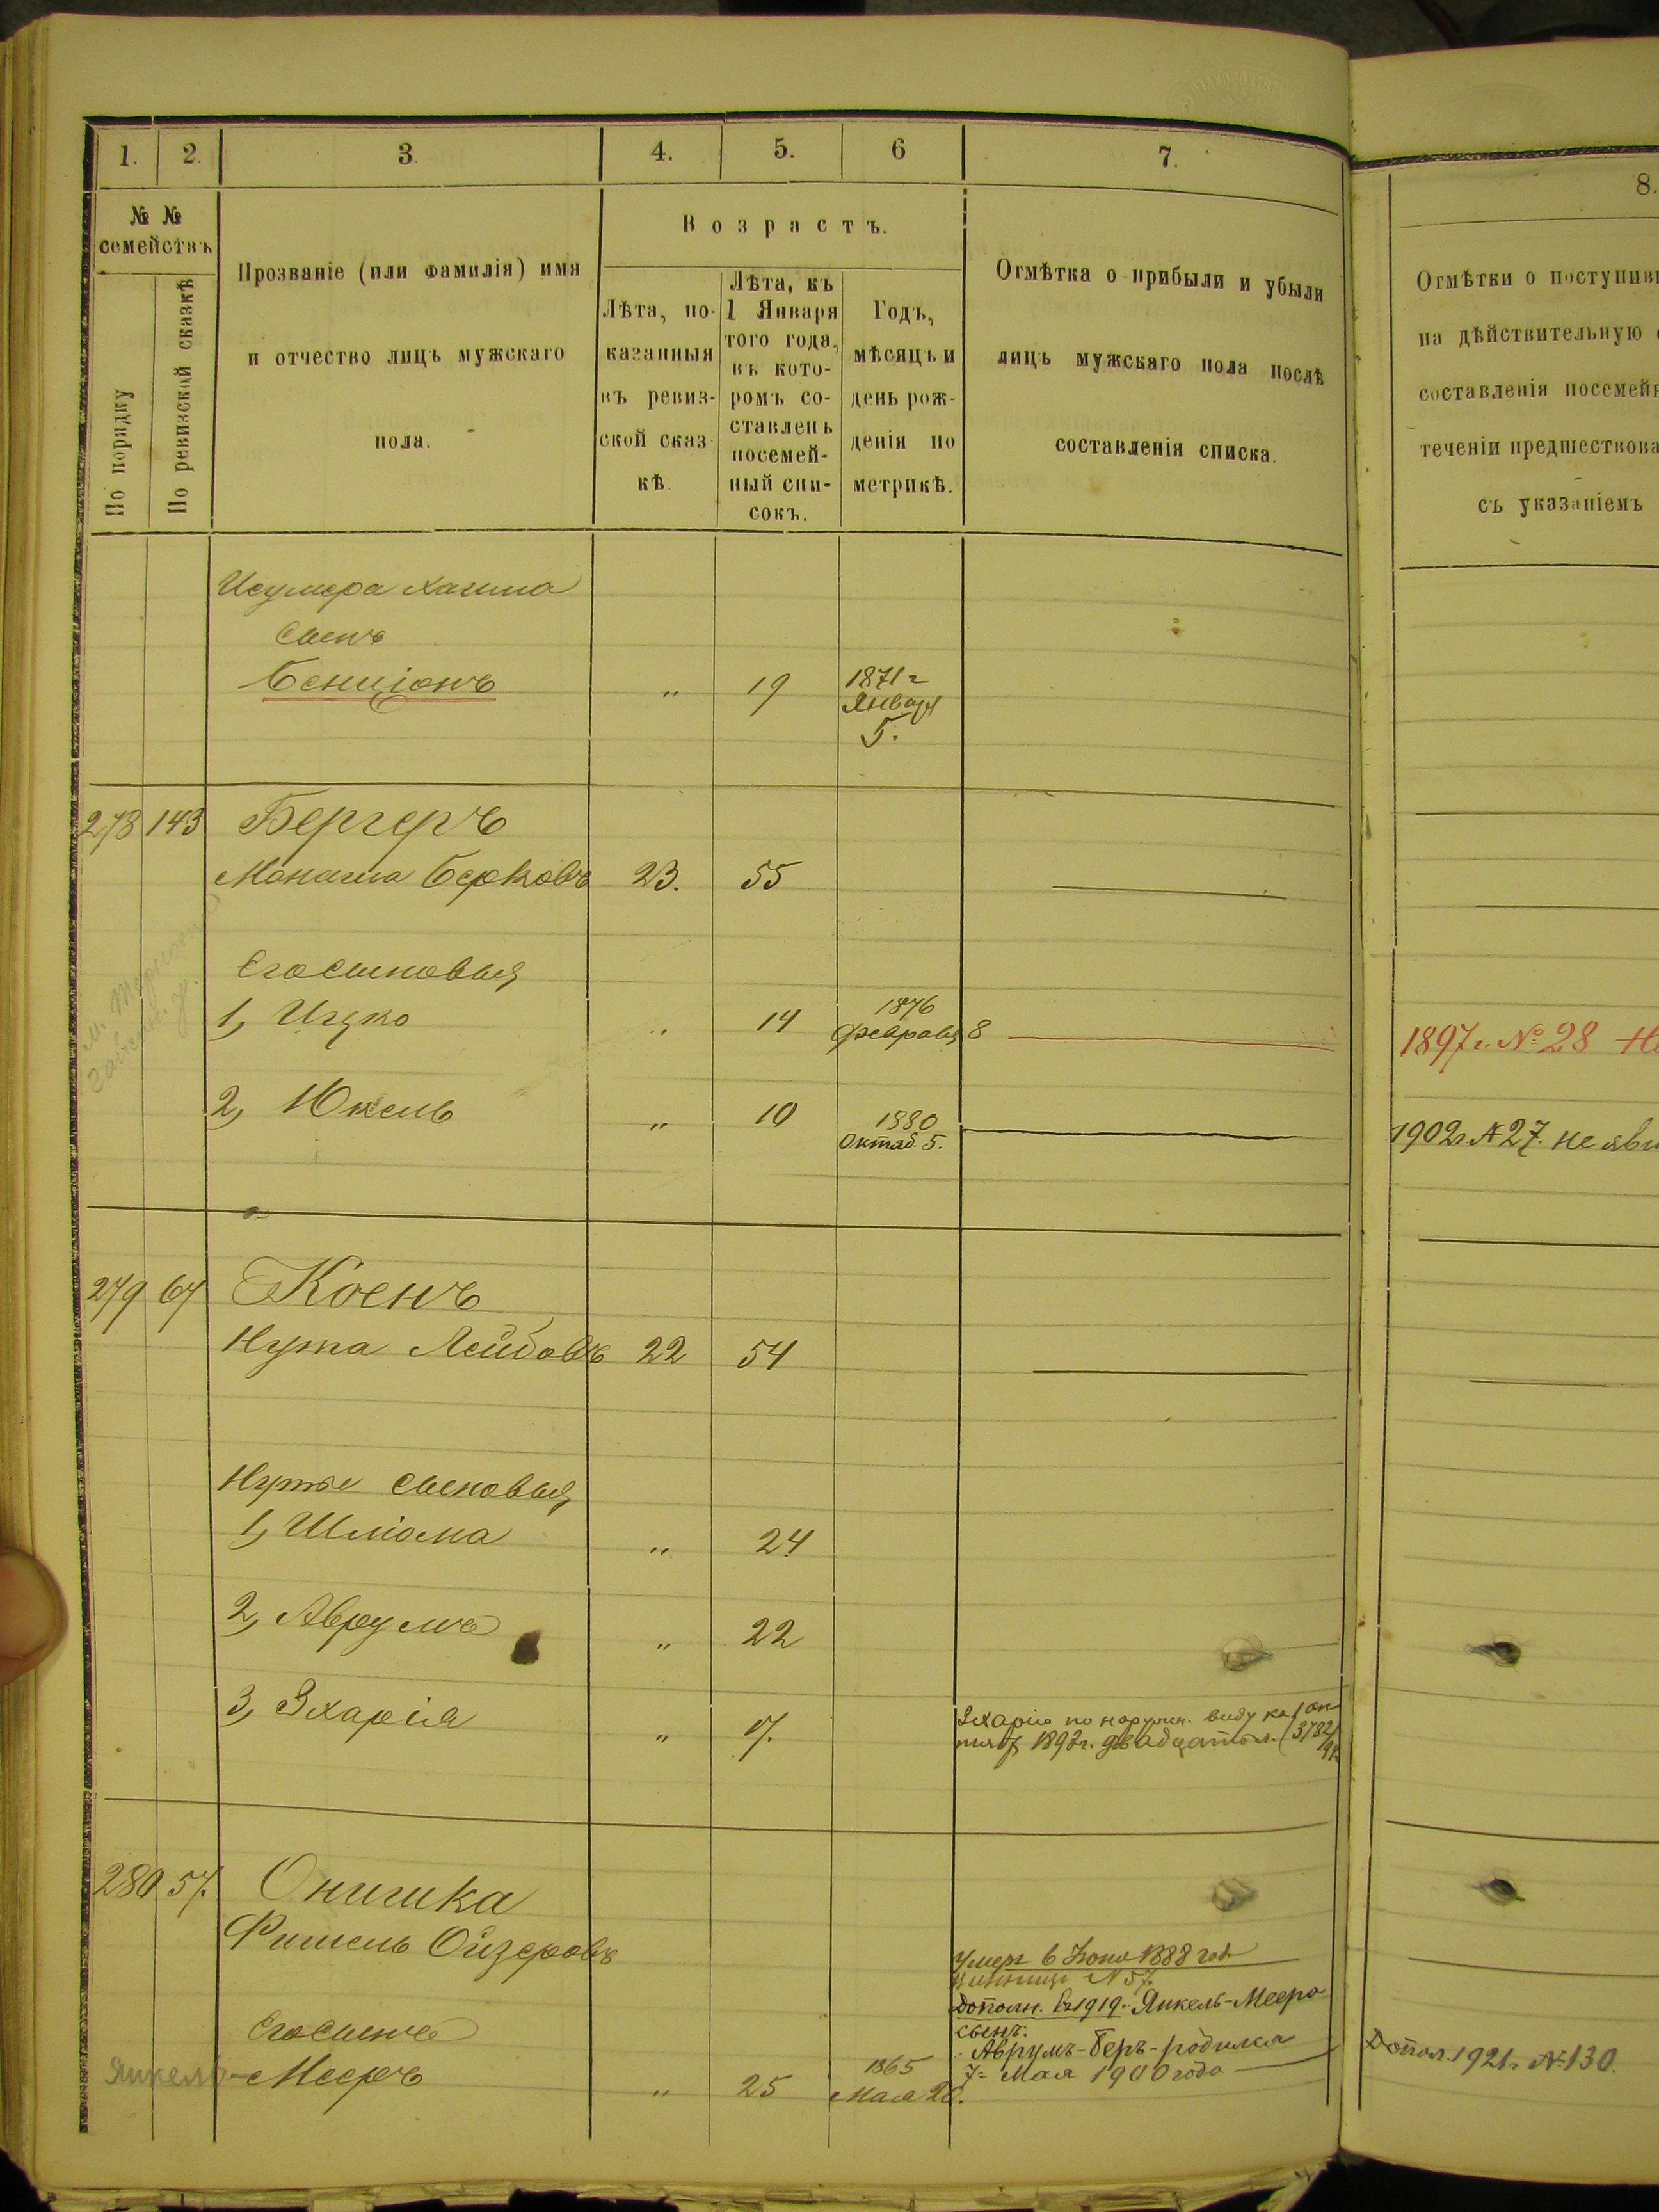 1. 2. 3. 4. 5. 6 7.
8.
№ №
семействъ
По порядку
По ревизской сказкѣ
Прозваніе (или фамилія) имя
и отчество лицъ мужскаго
пола.
Возрастъ.
Лѣта, по-
казанныя
въ ревиз-
ской сказ
кѣ.
Лѣта, къ
1 Января
того года,
въ кото-
ромъ со-
ставленъ
посемей-
ный спи-
сокъ.
Годъ,
мѣсяцъ и
день рож-
денія по
метрикѣ.
Отмѣтка о прибыли и убыли
лицъ мужскаго пола послѣ
составленія списка.
Отмѣтки о поступив
на дѣйствительную
составленія посемей
теченіи предшествова
съ указаніемъ
Хаима
Сынъ
Бенціонъ " 19 1871 г
Января
5.
278 143 Бергеръ
Монаша Берковъ 23. 55
Его сыновья
1, Ицко " 14 1876
февраля 8
1897 г. № 28
2, Юкель " 10 1880
Октяб. 5.
1902 г № 27. не яви
279 67 Коенъ
Нута Лейбовъ 22 54
Нуты сыновья
1, Шлiома " 24
2, Аврумъ " 22
3, Зхарія " 7.
Зхарію по наружн. виду къ 1 ок
тяб 1893 г. двадцать л. (3782/
94
280 57. Онишка
Фишель Ойзеровъ
Умеръ 6 Іюня 1888 год
№ 57.
Дополн. въ 1919. Янкель-Меера
сынъ:
Аврумъ-Беръ-родился
7 Мая 1900 года
Его сынъ
Янкель-Мееръ " 25 1865
Мая 20.
Допол. 1921 г № 130.